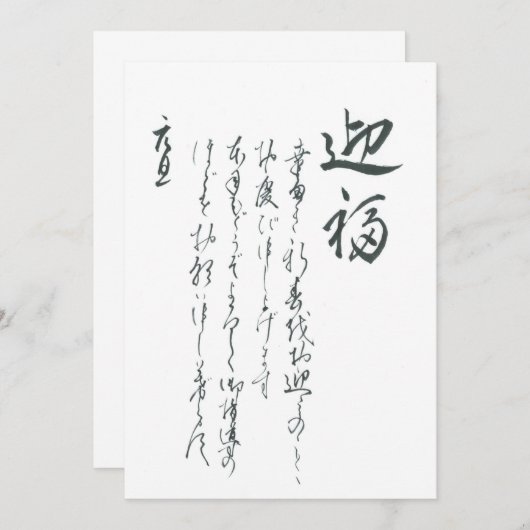 迎福
幸多き新春をお迎えのことゝ
お慶び申し上げます
本年もどうぞよろしく御指導の
ほどをお願い申し上げます
元旦